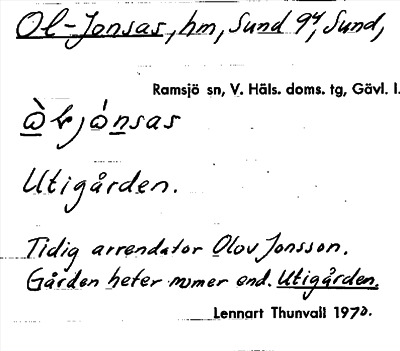 Ol-Jonsas, hm, Sund 9⁴, Sund,
Ramsjö sn, V. Häls. doms. tg, Gävl. l.
Utigården.
Tidig arrendator Olov Jonsson.
Gården heter numer end. Utigården.
Lennart Thunvall